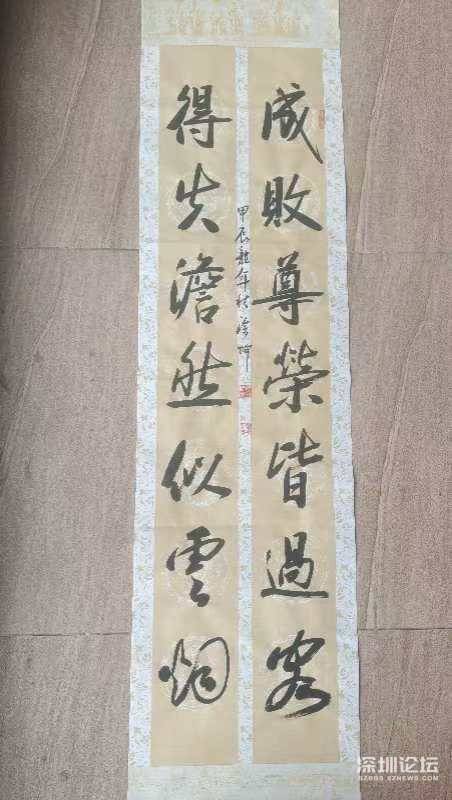 成敗尊榮皆過客
得失澹然似雲烟
甲辰龍年秋
深圳论坛